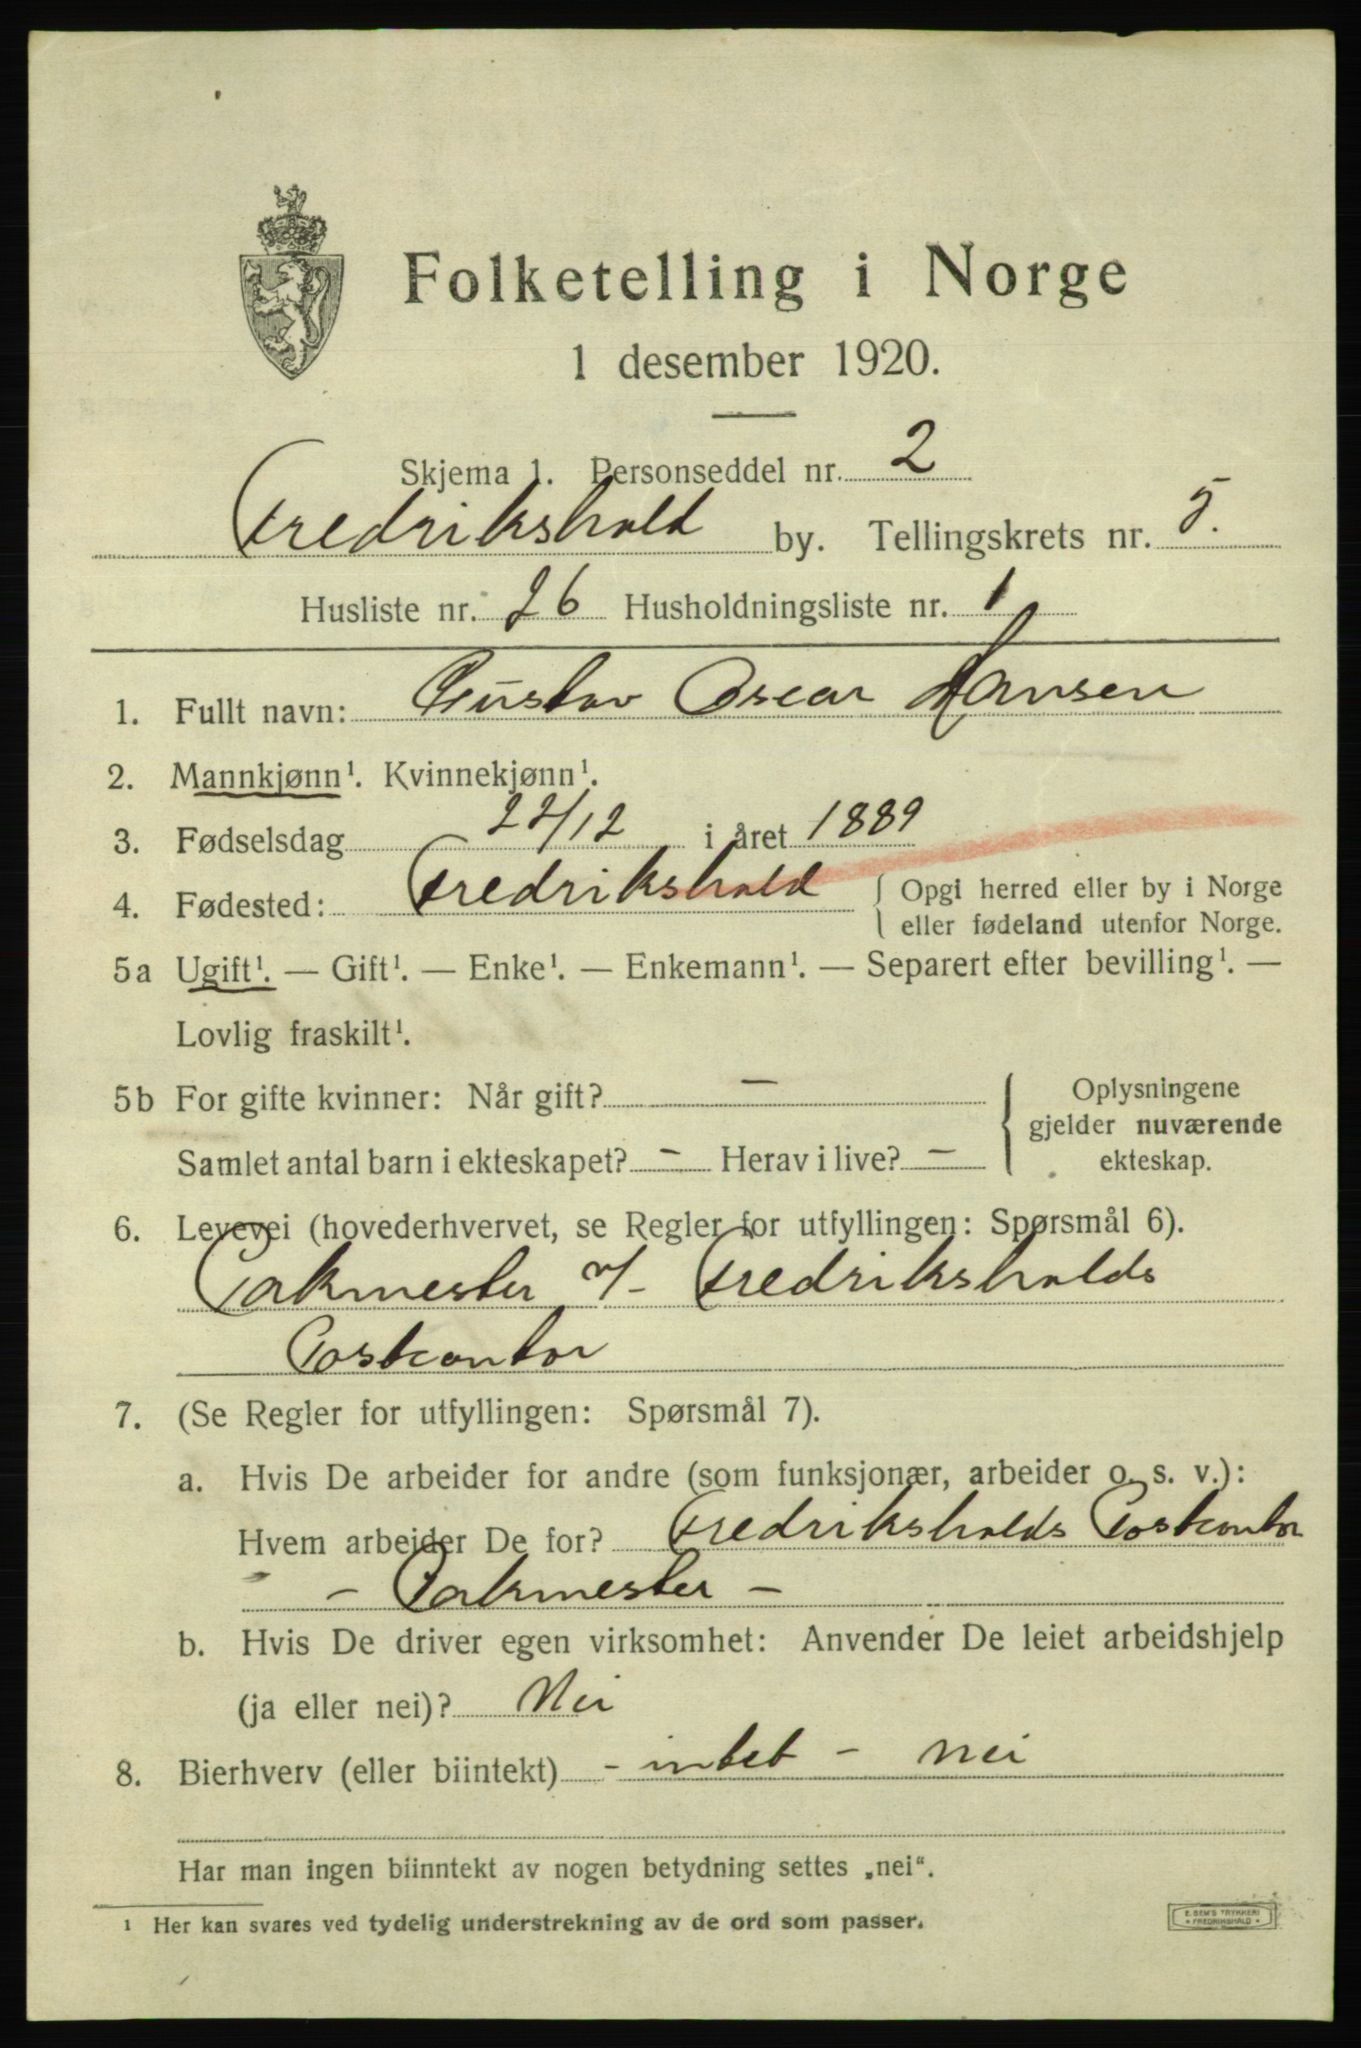 Folketelling i Norge
1 desember 1920.
Skjema 1. Personseddel nr. 2
Fredrikshald by. Tellingskrets nr. 5.
Husliste nr. 26 Husholdningsliste nr. 1
1. Fullt navn: Gustav Oscar Hansen
2. Mannkjønn¹. Kvinnekjønn¹.
3. Fødselsdag 22/12 i året 1889
4. Fødested: Fredrikshald { Opgi herred eller by i Norge
eller fødeland utenfor Norge.
5a Ugift¹. — Gift¹. — Enke¹. — Enkemann¹. — Separert efter bevilling¹. —
Lovlig fraskilt¹.
5b For gifte kvinner: Når gift? — { Oplysningene
gjelder nuværende
Samlet antal barn i ekteskapet? - Herav i live? - ekteskap.
6. Levevei (hovederhvervet, se Regler for utfyllingen: Spørsmål 6).
Pakmester v/- Fredrikshalds
Postcontor
7. (Se Regler for utfyllingen: Spørsmål 7).
a. Hvis De arbeider for andre (som funksjonær, arbeider o. s. v.):
Hvem arbeider De for? Fredrikshalds Postcontor
- Pakmester -
b. Hvis De driver egen virksomhet: Anvender De leiet arbeidshjelp
(ja eller nei)? Nei
8. Bierhverv (eller biintekt) - intet - nei
Har man ingen biinntekt av nogen betydning settes „nei“.
¹ Her kan svares ved tydelig understrekning av de ord som passer.
E. SEM'S TRYKKERI
* FREDRIKSHALD *